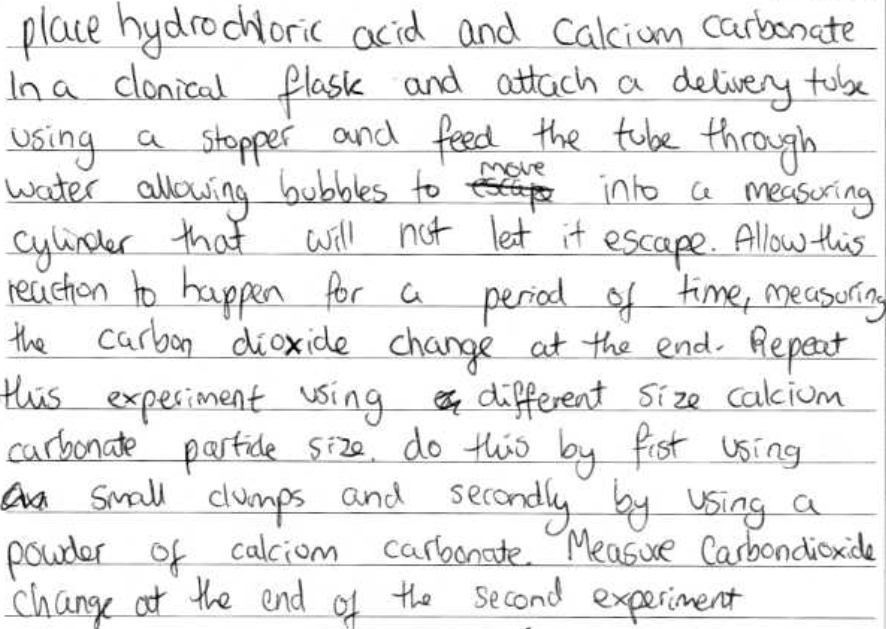 place hydrochloric acid and calcium carbonate
In a clonical flask and attach a delivery tube
using a stopper and feed the tube through
water allowing bubbles to move into a measuring
cylinder that will not let it escape. Allow this
reaction to happen for a period of time, measuring
the carbon dioxide change at the end. Repeat
this experiment using different size calcium
carbonate particle size. do this by fist using
small clumps and secondly by using a
powder of calcium carbonate. Measure Carbondioxide
change at the end of the second experiment